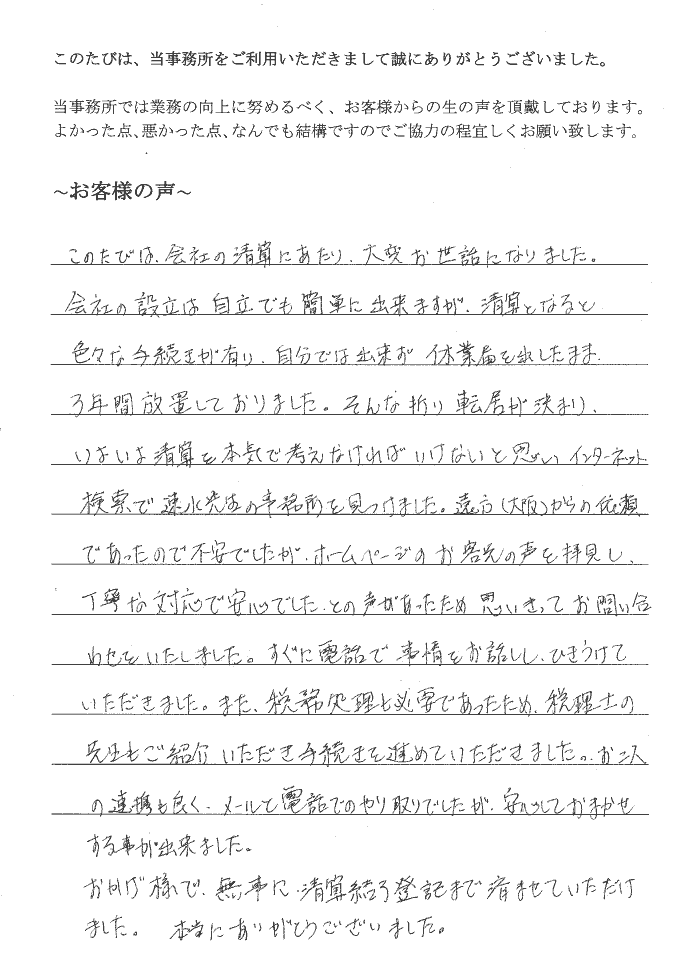 このたびは、当事務所をご利用いただきまして誠にありがとうございました。
当事務所では業務の向上に努めるべく、お客様からの生の声を頂戴しております。
よかった点、悪かった点、なんでも結構ですのでご協力の程宜しくお願い致します。
~お客様の声~
このたびは、会社の清算にあたり、大変お世話になりました。
会社の設立は自立でも簡単に出来ますが、清算となると
色々な手続きが有り、自分では出来ず休業届を出したまま
3年間放置しておりました。そんな折り転居が決まり、
いよいよ清算を本気で考えなければいけないと思いインターネット
検索で速水先生の事務所を見つけました。遠方(大阪)からの依頼
であったので不安でしたが、ホームページのお客先の声を拝見し、
丁寧な対応で安心でした、との声があったため思いきってお問い合
わせをいたしました。すぐに電話で事情をお話しし、ひきうけて
いただきました。また、税務処理も必要であったため、税理士の
先生もご紹介いただき手続きを進めていただきました。お二人
の連携も良く、メールと電話でのやり取りでしたが、安心しておまかせ
する事が出来ました。
おかげ様で、無事に、清算結了登記まで済ませていただけ
ました。 本当にありがとうございました。